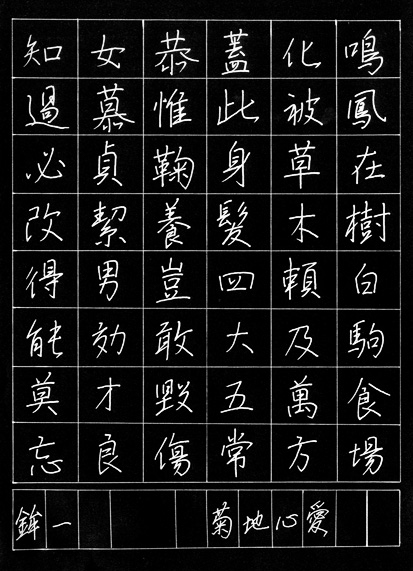 鳴鳳在樹白駒食場
化被草木頼及萬方
蓋此身髮四大五常
恭惟鞠養豈敢毀傷
女慕貞絜男効才良
知過必改得能莫忘
鉾一 菊地心愛